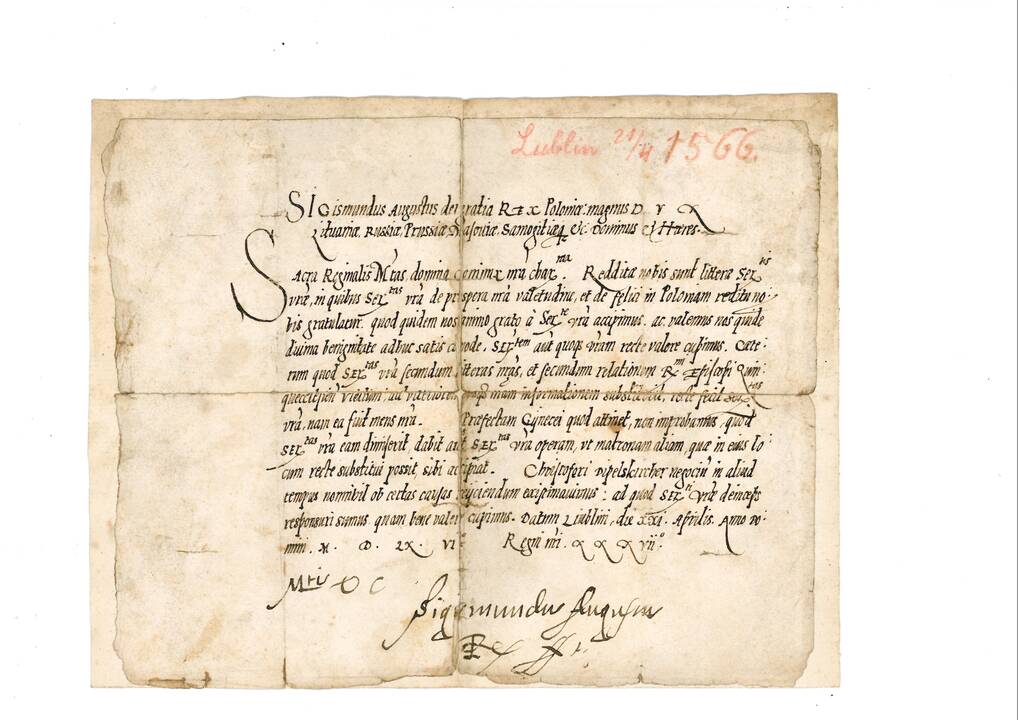 Lublin 21/4 1566.
SIGismundus Augustus dei gratia REX Poloniæ: magnus DVX
Lituaniæ, Russiæ, Prussiæ Masoviæ, Samogitiæq; &c Dominus & Hæres.
Sacra Reginalis Mtas, domina coniunx nra char ma. Redditæ nobis sunt litteræ Ser tis
vræ, in quibus Ser tas vra de prospera nra valetudine, et de felici in Poloniam reditu no:
bis gratulatur. quod quidem nos animo grato a Ser te vra accipimus. ac valemus nos quidē
divina benignitate adhuc satis cōmode. Ser tem aūt quoq; vram recte valere cupimus. Cæte:
rum quod Ser tas vra secundum litteras nras, et secundum relationem Rmi Episcopi Quin:
informationem substituit, recte fecit Ser tas
vra, nam ea fuit mens nra. Præfectam Gynecei quod attinet, non improbamus, quod
Ser tas vra eam dimiserit, dabit aūt Ser tas vra operam, ut matronam aliam, quæ in eius lo:
cum recte substitui possit, sibi accipiat. Christoferi Pipelskircher negociū in aliud
tempus nonnihil ob certas causas reijciendum existimavimus: ad quod Ser ti vræ deinceps
responsuri sumus. quam bene valere cupimus. Datum Liublini, die XXI. Aprilis. Anno Do:
mini. M. D. LX. VI° Regni nri. XXXVII°.
Sigismundus Augustus
Rex